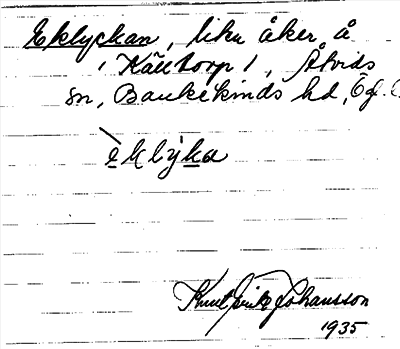 Eklyckan, liten åker, å
Källtorp 1, Åtvids
sn, Bankekinds hd, Ög.
èklỳka
Knut Erik Johansson
1935